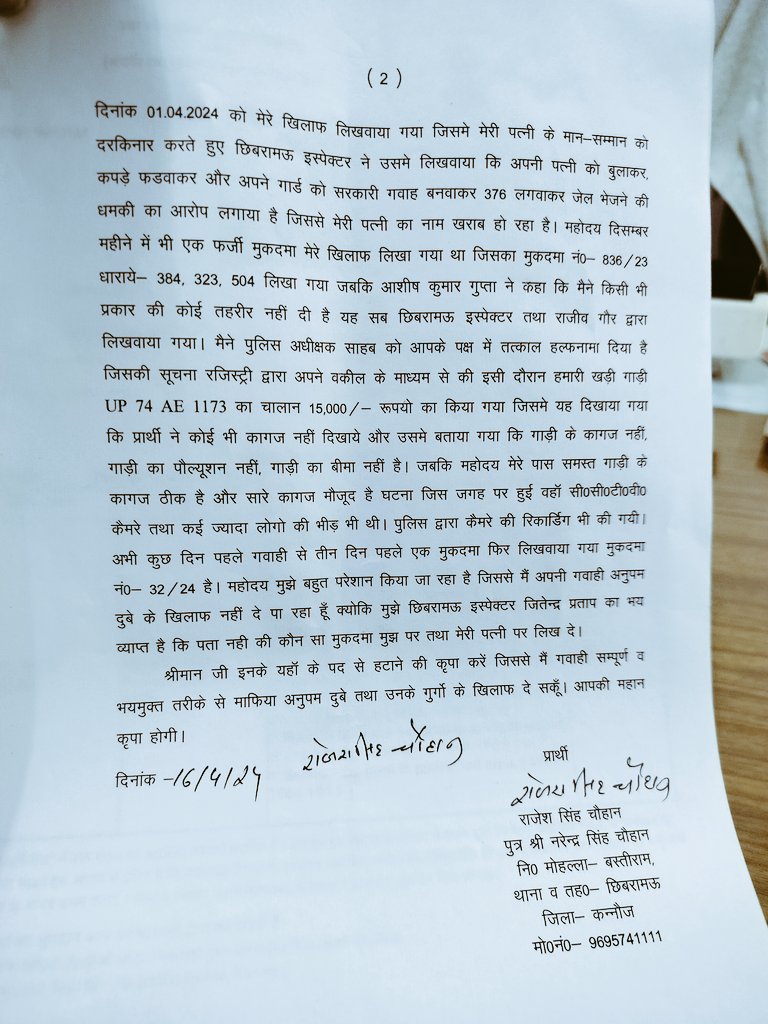 ( 2 )
दिनांक 01.04.2024 को मेरे खिलाफ लिखवाया गया जिसमे मेरी पत्नी के मान–सम्मान को
दरकिनार करते हुए छिबरामऊ इस्पेक्टर ने उसमे लिखवाया कि अपनी पत्नी को बुलाकर,
कपड़े फडवाकर और अपने गार्ड को सरकारी गवाह बनवाकर 376 लगवाकर जेल भेजने की
धमकी का आरोप लगाया है जिससे मेरी पत्नी का नाम खराब हो रहा है। महोदय दिसम्बर
महीने में भी एक फर्जी मुकदमा मेरे खिलाफ लिखा गया था जिसका मुकदमा नं0– 836/23
धाराये– 384, 323, 504 लिखा गया जबकि आशीष कुमार गुप्ता ने कहा कि मैने किसी भी
प्रकार की कोई तहरीर नहीं दी है यह सब छिबरामऊ इस्पेक्टर तथा राजीव गौर द्वारा
लिखवाया गया। मैने पुलिस अधीक्षक साहब को आपके पक्ष में तत्काल हल्फनामा दिया है
जिसकी सूचना रजिस्ट्री द्वारा अपने वकील के माध्यम से की इसी दौरान हमारी खड़ी गाड़ी
UP 74 AE 1173 का चालान 15,000/– रूपयो का किया गया जिसमे यह दिखाया गया
कि प्रार्थी ने कोई भी कागज नहीं दिखाये और उसमे बताया गया कि गाड़ी के कागज नहीं,
गाड़ी का पौल्यूशन नहीं, गाड़ी का बीमा नहीं है। जबकि महोदय मेरे पास समस्त गाड़ी के
कागज ठीक है और सारे कागज मौजूद है घटना जिस जगह पर हुई वहॉ सी0सी0टी0वी0
कैमरे तथा कई ज्यादा लोगो की भीड़ भी थी। पुलिस द्वारा कैमरे की रिकार्डिग भी की गयी।
अभी कुछ दिन पहले गवाही से तीन दिन पहले एक मुकदमा फिर लिखवाया गया मुकदमा
नं0– 32/24 है। महोदय मुझे बहुत परेशान किया जा रहा है जिससे मैं अपनी गवाही अनुपम
दुबे के खिलाफ नहीं दे पा रहा हूँ क्योकि मुझे छिबरामऊ इस्पेक्टर जितेन्द्र प्रताप का भय
व्याप्त है कि पता नही की कौन सा मुकदमा मुझ पर तथा मेरी पत्नी पर लिख दे।
श्रीमान जी इनके यहॉ के पद से हटाने की कृपा करें जिससे मैं गवाही सम्पूर्ण व
भयमुक्त तरीके से माफिया अनुपम दुबे तथा उनके गुर्गो के खिलाफ दे सकूँ। आपकी महान
कृपा होगी।
राजेश सिंह चौहान
दिनांक –16/4/24
प्रार्थी
राजेश सिंह चौहान
राजेश सिंह चौहान
पुत्र श्री नरेन्द्र सिंह चौहान
नि0 मोहल्ला– बस्तीराम,
थाना व तह0– छिबरामऊ
जिला– कन्नौज
मो0नं0– 9695741111